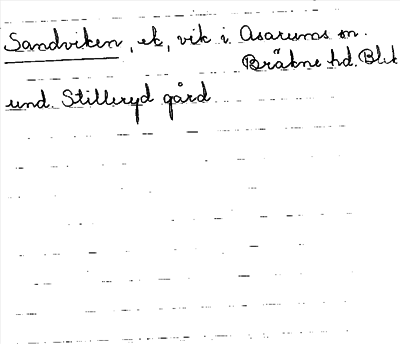 Sandviken, ek, vik i Asarums sn.
Bräkne hd. Blek
und. Stilleryd gård